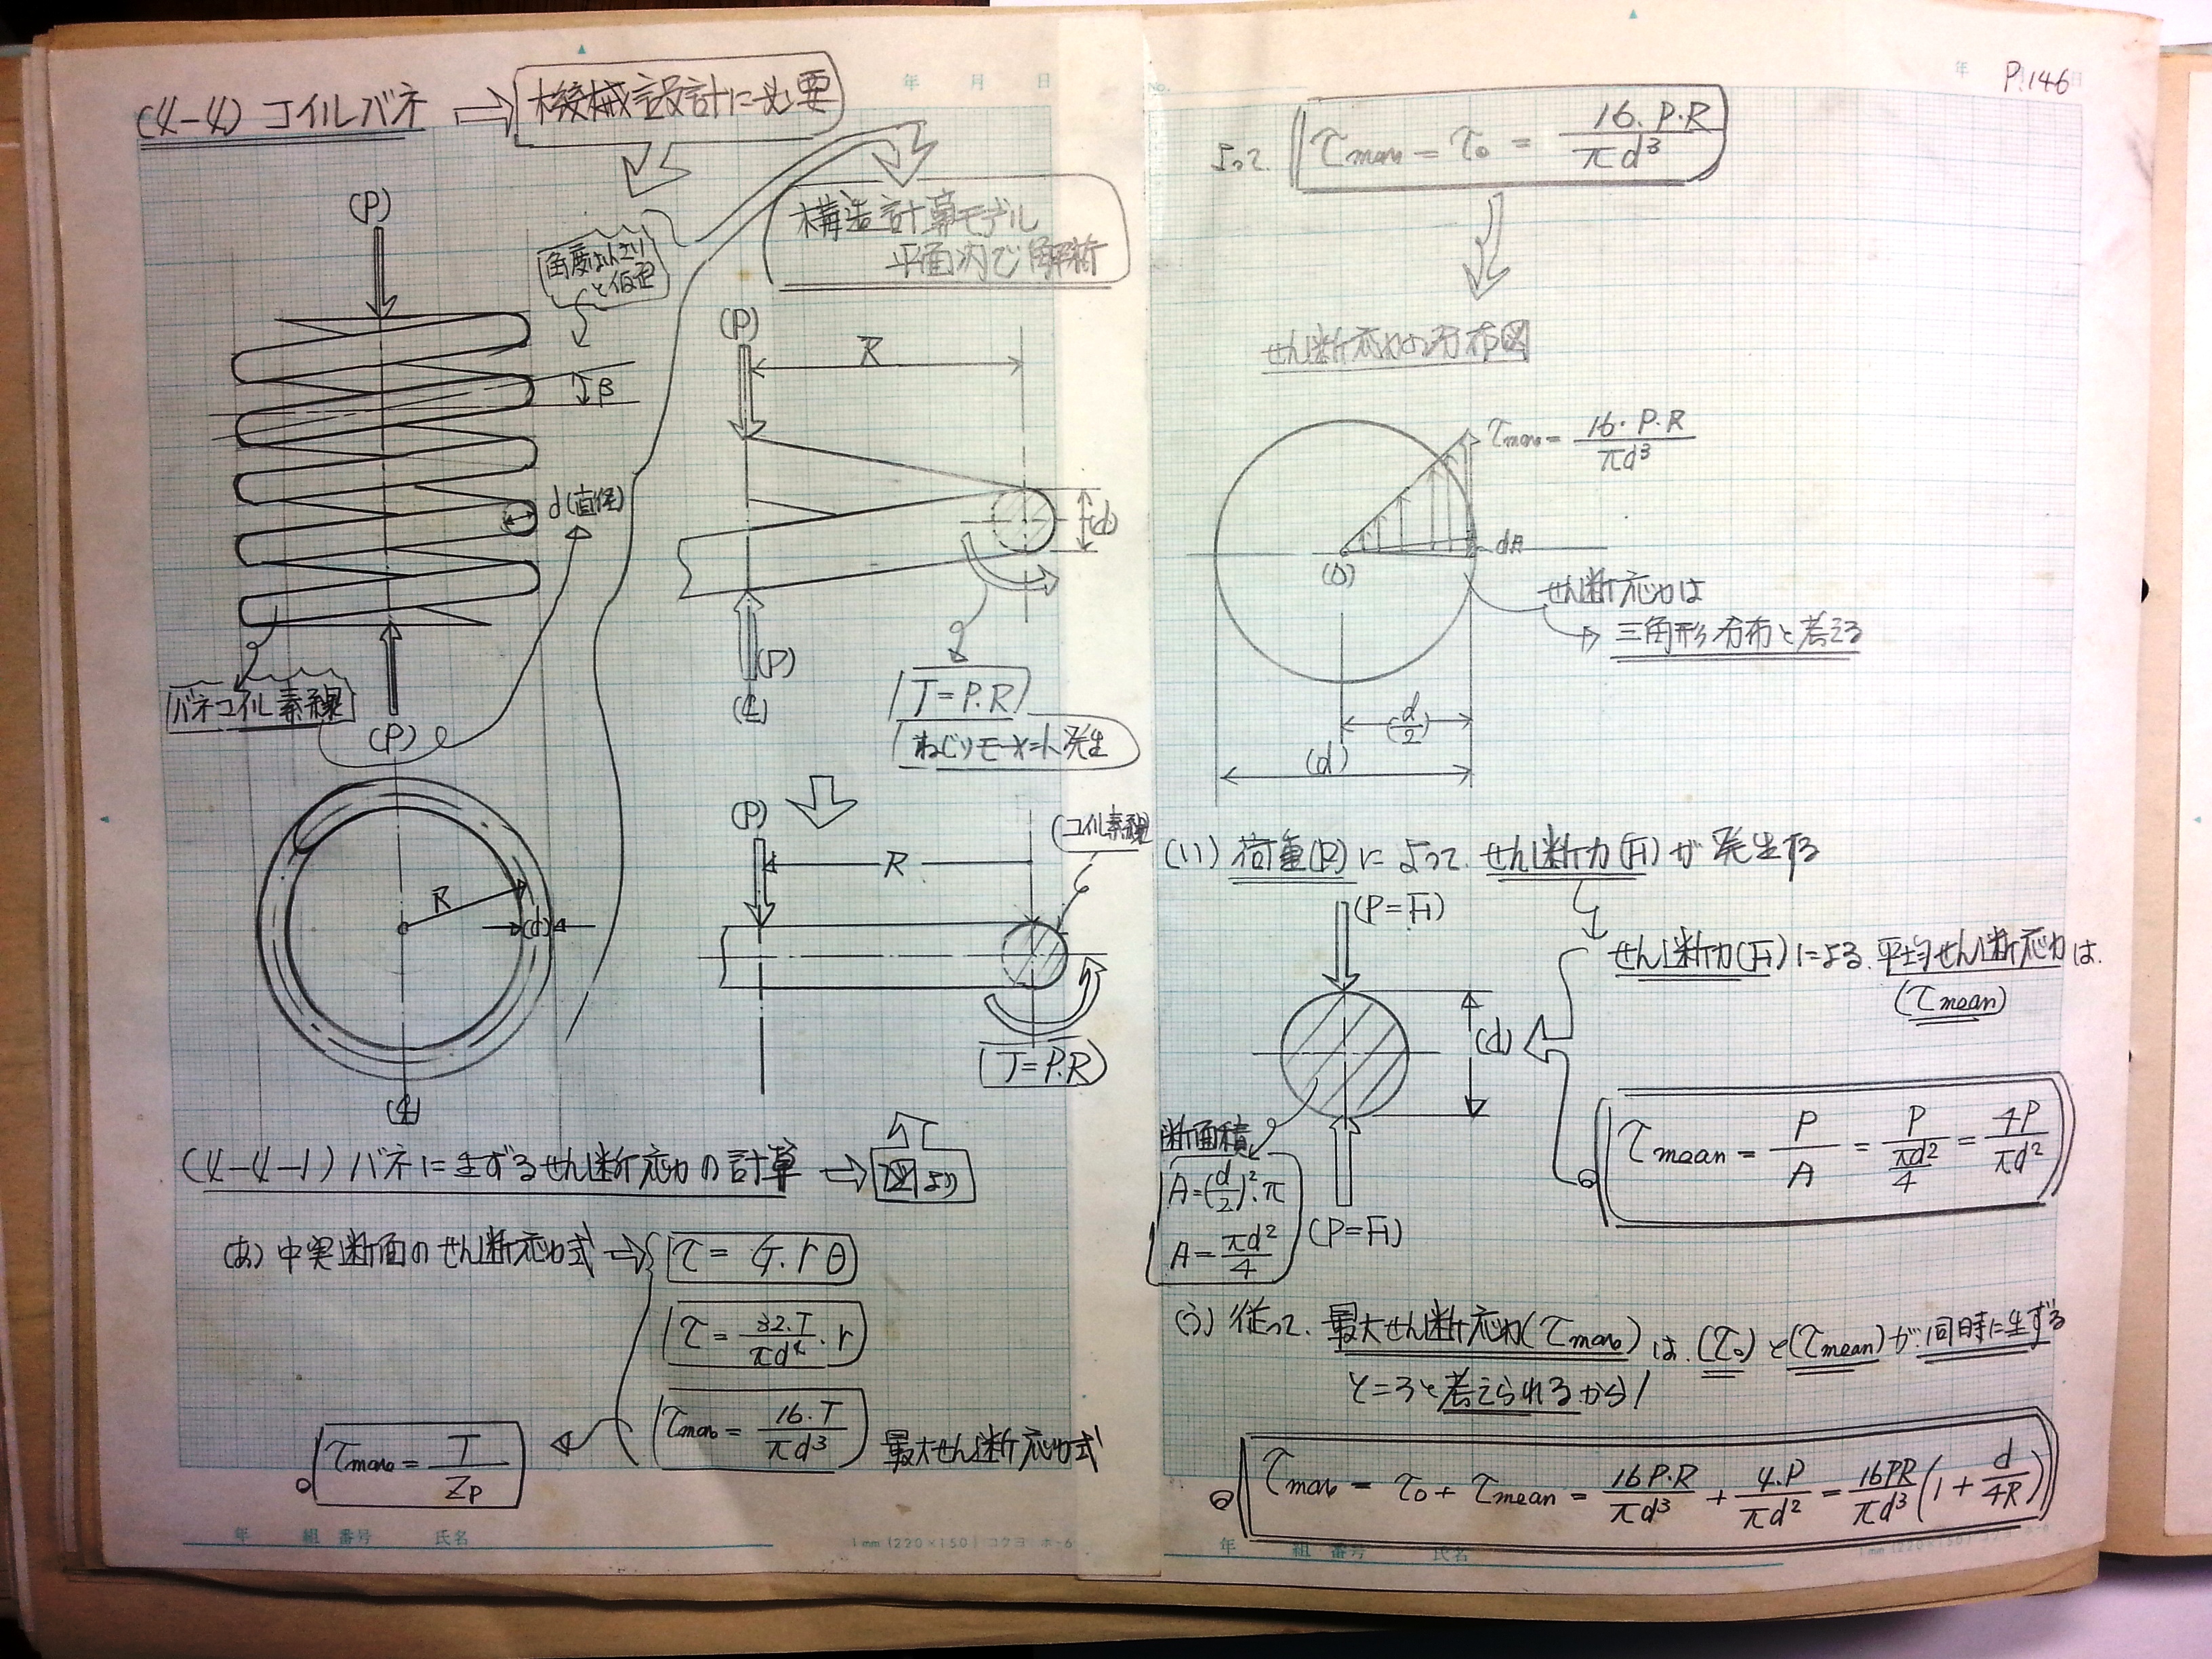 P.146
年 月 日
(4-4) コイルバネ ⇒ 機械設計に必要
(P)
角度は小さい
と仮定
β
d(直径)
バネコイル素線
(P)
R
(d)
(℄)
構造計算モデル
平面内で解析
(P)
R
(d)
(P)
(℄)
T=P.R
ねじりモーメント発生
(P)
R
(コイル素線
T=P.R
(4-4-1) バネに生ずるせん断応力の計算 → 図より
(あ) 中実断面のせん断応力式 → τ = G.rθ
τ = 32.T/πd⁴ . r
τmax = 16.T/πd³ 最大せん断応力式
τmax = T/Zp
年 組 番号 氏名
1mm (220×150) コクヨ ホ-6
No.
年
よって. τmax = τ₀ = 16.P.R/πd³
せん断応力の分布図
τmax = 16.P.R/πd³
dA
(O)
せん断応力は
→ 三角形分布と考える
(d/2)
(d)
(い) 荷重(P)によって. せん断力(F)が発生する
(P=F)
せん断力(F)による. 平均せん断応力は.
(τmean)
(d)
断面積
A=(d/2)².π
A=πd²/4
(P=F)
τmean = P/A = P/(πd²/4) = 4P/πd²
(う) 従って. 最大せん断応力(τmax)は. (τ₀)と(τmean)が同時に生ずる
ところと考えられるから
τmax = τ₀ + τmean = 16P.R/πd³ + 4.P/πd² = 16PR/πd³ (1 + d/4R)
年 組 番号 氏名